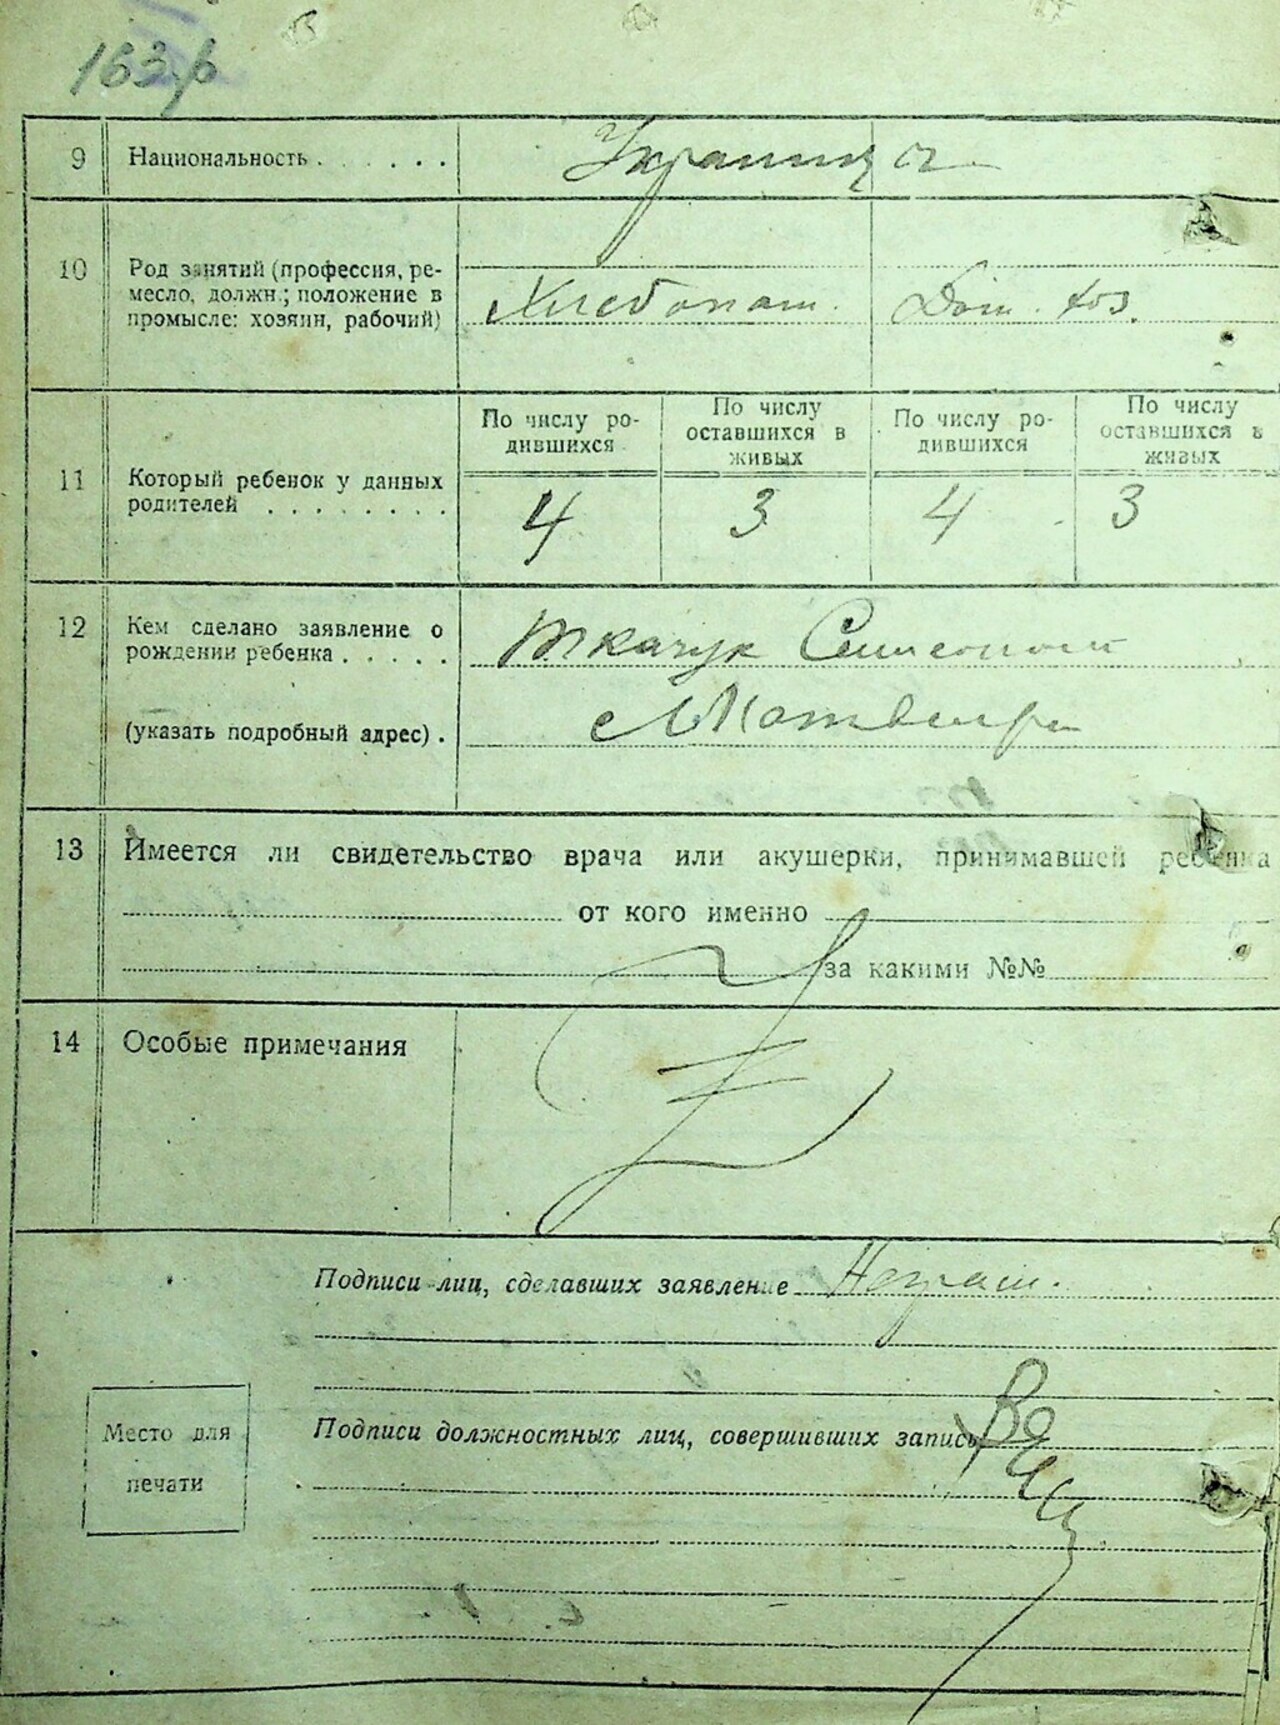 9 Национальность . . . . . . Украинця
10 Род занятий (профессия, ре-
месло, должн.; положение в
промысле: хозяин, рабочий)
Хлебопаш. Дом. хоз.
11 Который ребенок у данных
родителей . . . . . . . .
По числу ро-
дившихся
По числу
оставшихся в
живых
По числу ро-
дившихся
По числу
оставшихся в
живых
4 3 4 3
12 Кем сделано заявление о
рождении ребенка . . . . .
(указать подробный адрес) .
Ткачук
13 Имеется ли свидетельство врача или акушерки, принимавшей ребенка
от кого именно
за какими №№
14 Особые примечания
Подписи лиц, сделавших заявление Неграм.
Подписи должностных лиц, совершивших запись
Место для
печати